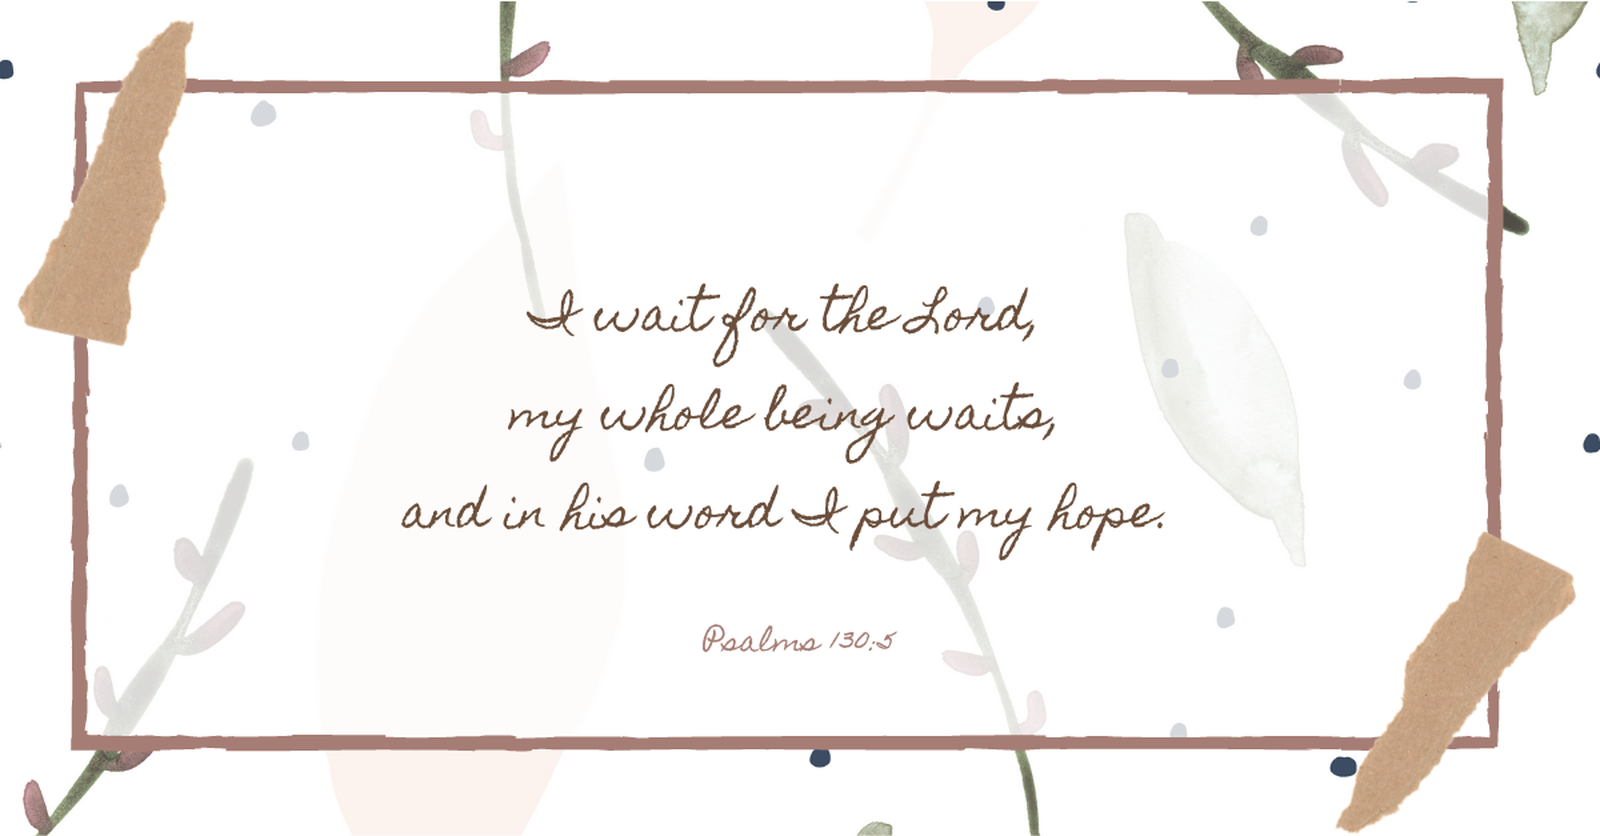 I wait for the Lord,
my whole being waits,
and in his word I put my hope.
Psalms 130:5